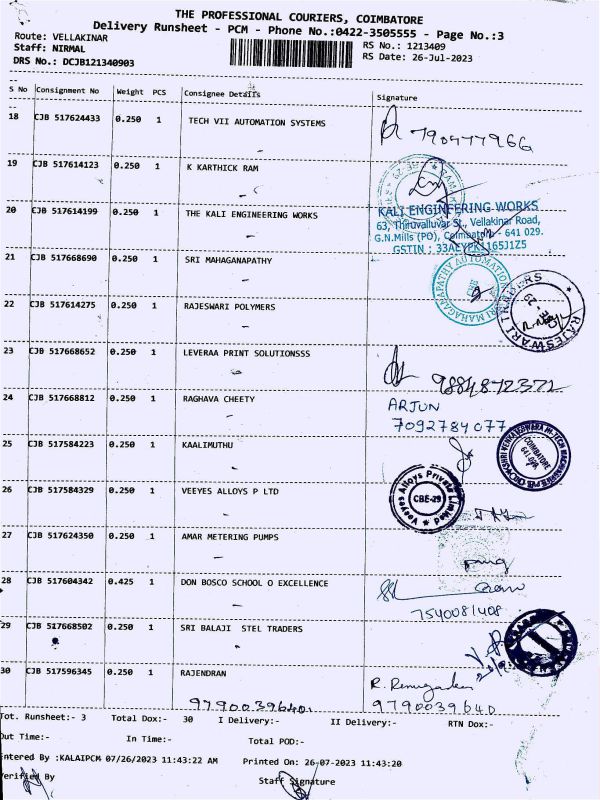 THE PROFESSIONAL COURIERS, COIMBATORE
Delivery Runsheet - PCM - Phone No.:0422-3505555 - Page No.:3
Route: VELLAKINAR
RS No.: 1213409
Staff: NIRMAL
RS Date: 26-Jul-2023
DRS No.: DCJB121340903
S No Consignment No Weight PCS Consignee Details Signature
18 CJB 517624433 0.250 1 TECH VII AUTOMATION SYSTEMS
19 CJB 517614123 0.250 1 K KARTHICK RAM
20 CJB 517614199 0.250 1 THE KALI ENGINEERING WORKS
KALI ENGINEERING WORKS
63, Thiruvalluvar St., Vellakinar Road,
G.N.Mills (PO), Coimbatore - 641 029.
GSTIN : 33AEYPK1165J1Z5
21 CJB 517668690 0.250 1 SRI MAHAGANAPATHY
SRI MAHAGANAPATHY AUTOMATION
22 CJB 517614275 0.250 1 RAJESWARI POLYMERS
RAJESWARI TRADERS
23 CJB 517668652 0.250 1 LEVERAA PRINT SOLUTIONSSS
9884872372
24 CJB 517668812 0.250 1 RAGHAVA CHEETY
ARJUN
7092784077
25 CJB 517584223 0.250 1 KAALIMUTHU
COIMBATORE
26 CJB 517584329 0.250 1 VEEYES ALLOYS P LTD
Veeyes Alloys Private Limited
CBE-29
27 CJB 517624350 0.250 1 AMAR METERING PUMPS
28 CJB 517604342 0.425 1 DON BOSCO SCHOOL O EXCELLENCE
7540081408
29 CJB 517668502 0.250 1 SRI BALAJI STEL TRADERS
30 CJB 517596345 0.250 1 RAJENDRAN
9790039640 9790039640
Tot. Runsheet:- 3 Total Dox:- 30 I Delivery:- II Delivery:- RTN Dox:-
Out Time:- In Time:- Total POD:-
Entered By :KALAIPCM 07/26/2023 11:43:22 AM Printed On: 26-07-2023 11:43:20
Verified By Staff Signature